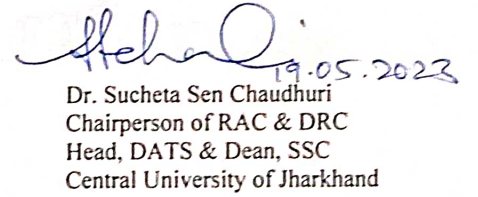 19.05.2023
Dr. Sucheta Sen Chaudhuri
Chairperson of RAC & DRC
Head, DATS & Dean, SSC
Central University of Jharkhand